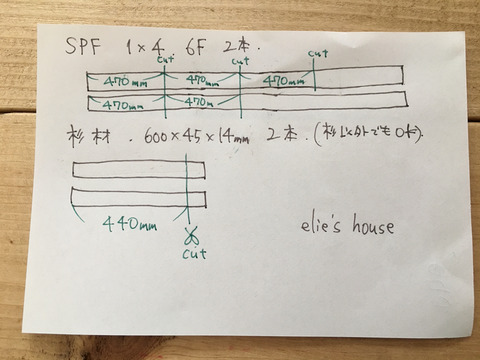 SPF 1×4 6F 2本.
cut cut cut
470mm 470mm 470mm
470mm 470m
杉材. 600×45×14mm 2本. (杉以外でもOK).
440mm
cut
elie's house